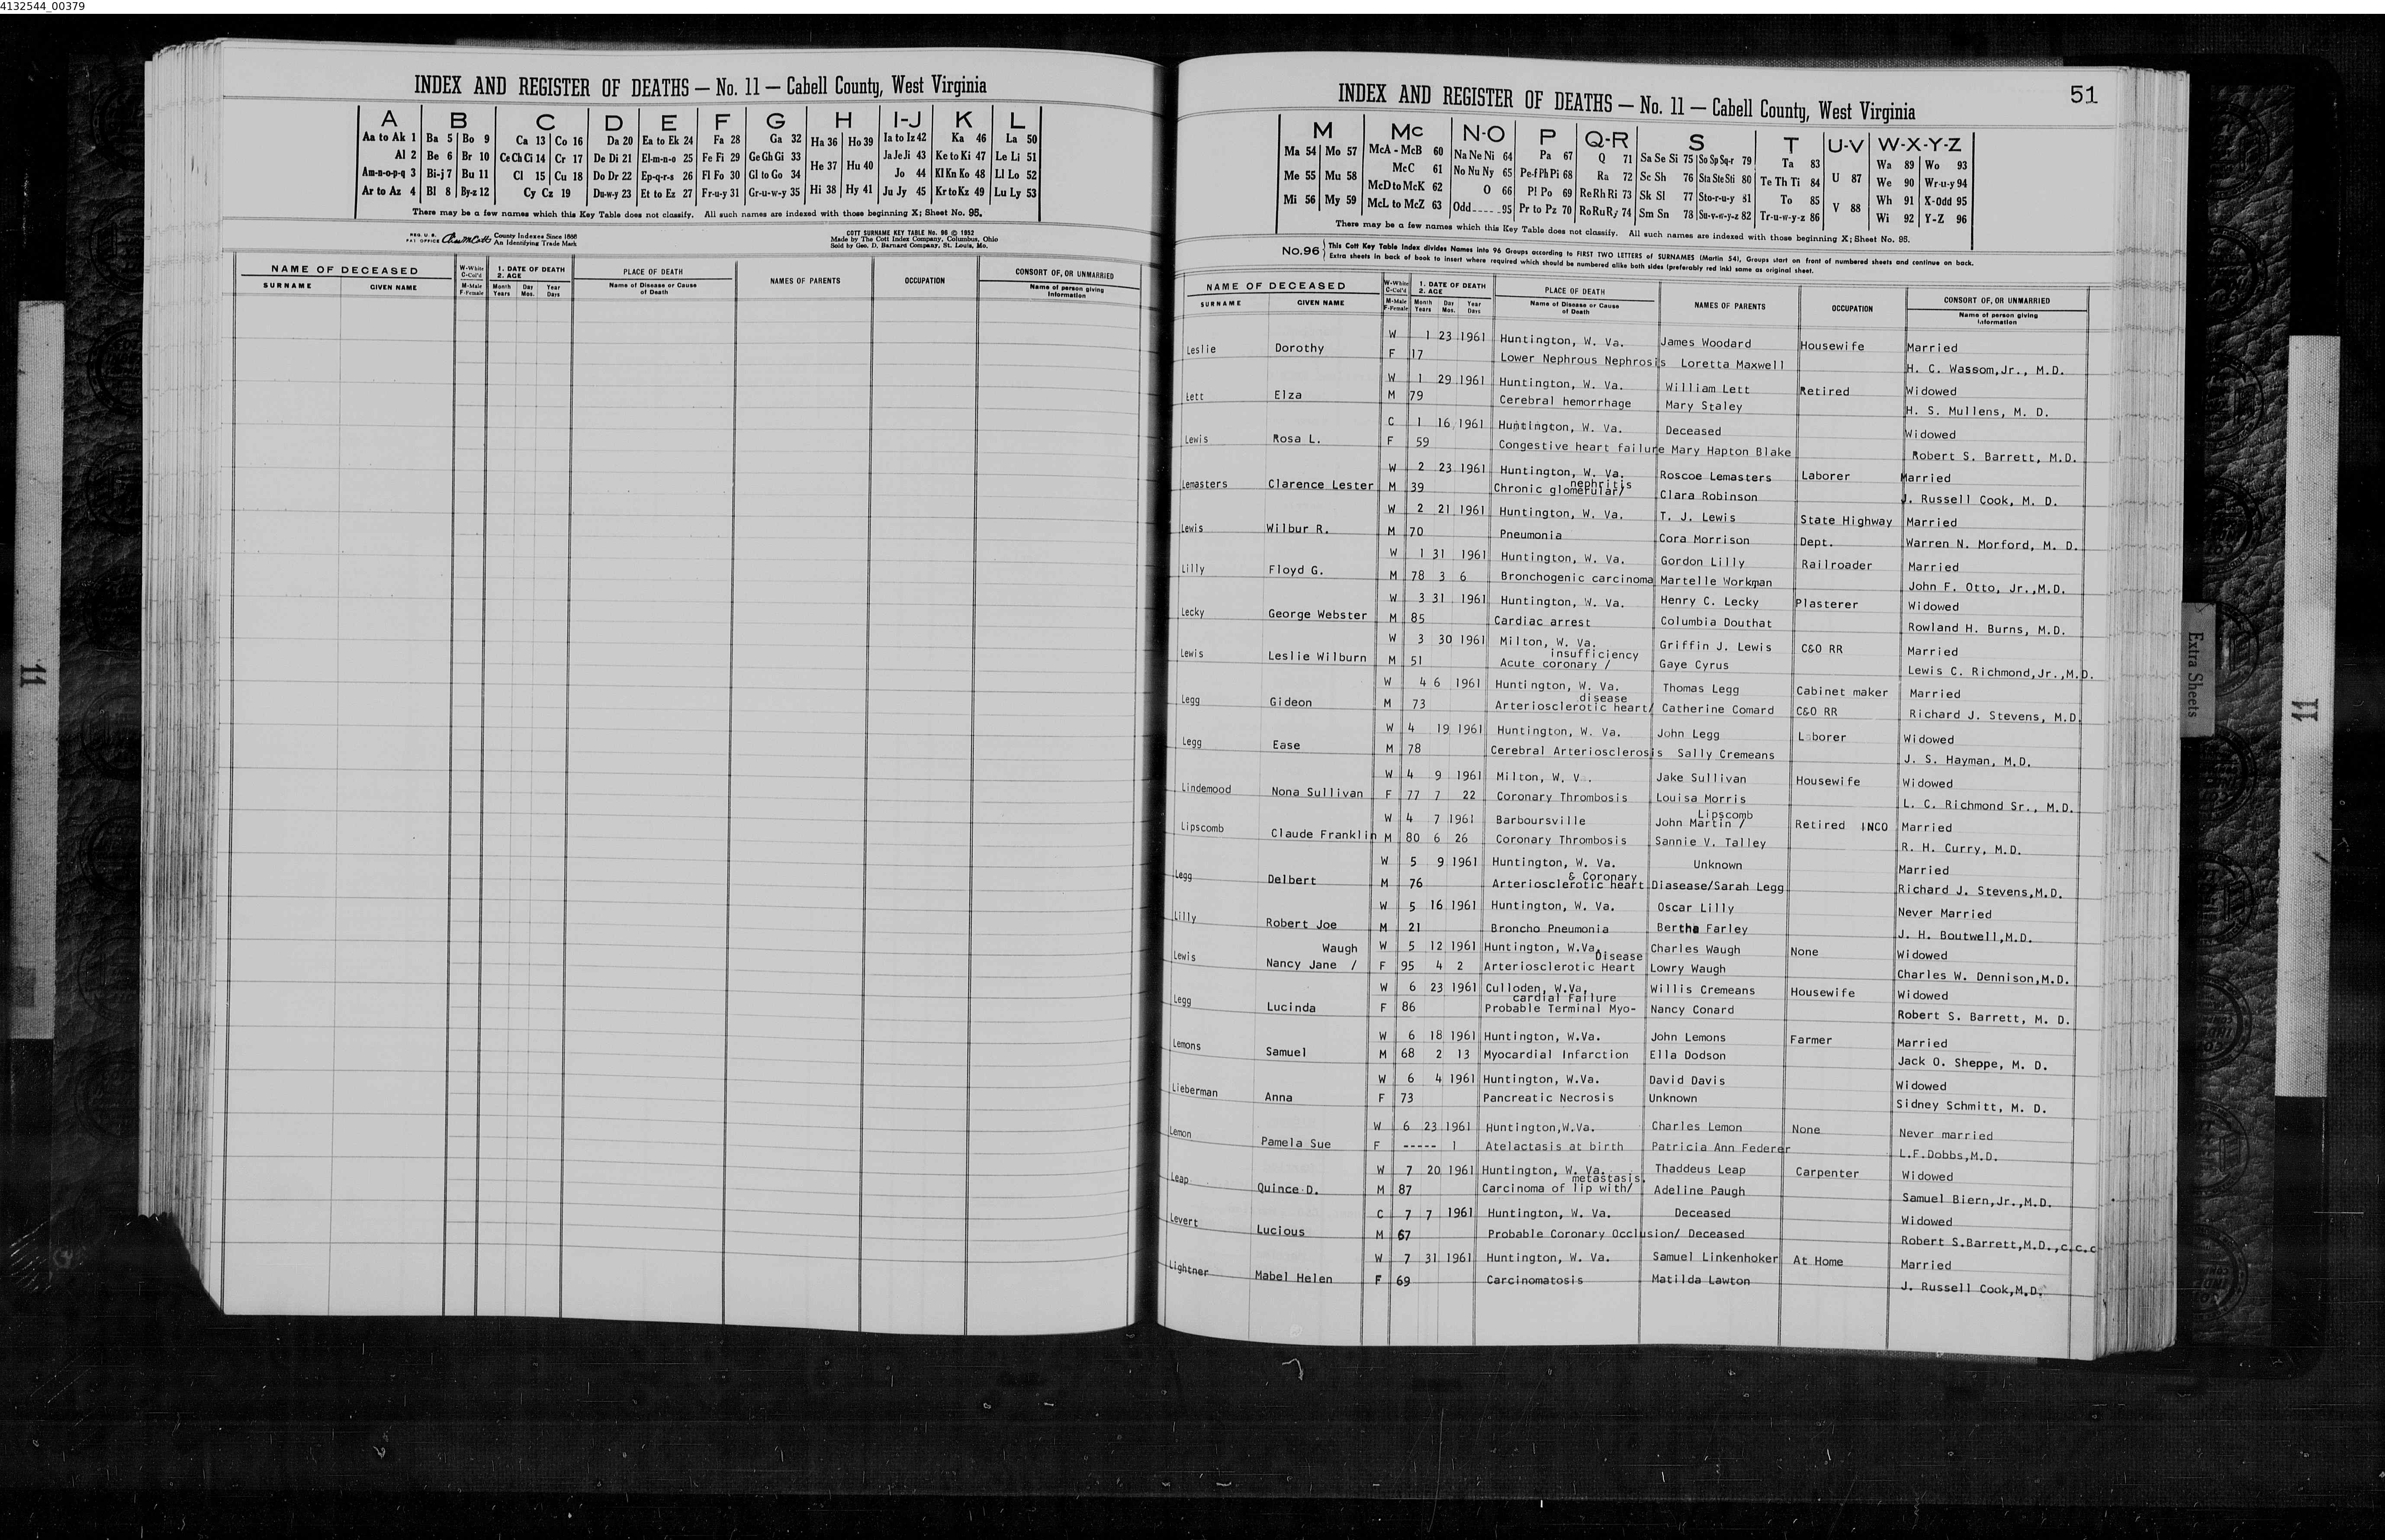 4132544_00379
INDEX AND REGISTER OF DEATHS — No. 11 — Cabell County, West Virginia
A B C D E F G H I-J K L
Aa to Ak 1 Ba 5 Bo 9 Ca 13 Co 16 Da 20 Ea to Ek 24 Fa 28 Ga 32 Ha 36 Ho 39 Ia to Iz 42 Ka 46 La 50
Al 2 Be 6 Br 10 Ce Ch Ci 14 Cr 17 De Di 21 El-m-n-o 25 Fe Fi 29 Ge Gh Gi 33 He 37 Hu 40 Ja Je Ji 43 Ke to Ki 47 Le Li 51
Am-n-o-p-q 3 Bi-j 7 Bu 11 Cl 15 Cu 18 Do Dr 22 Ep-q-r-s 26 Fl Fo 30 Gl to Go 34 Jo 44 Kl Kn Ko 48 Ll Lo 52
Ar to Az 4 Bl 8 By-z 12 Cy Cz 19 Du-w-y 23 Et to Ez 27 Fr-u-y 31 Gr-u-w-y 35 Hi 38 Hy 41 Ju Jy 45 Kr to Kz 49 Lu Ly 53
There may be a few names which this Key Table does not classify. All such names are indexed with those beginning X; Sheet No. 95.
REG. U. S. PAT. OFFICE County Indexes Since 1888
An Identifying Trade Mark
COTT SURNAME KEY TABLE No. 96 © 1952
Made by The Cott Index Company, Columbus, Ohio
Sold by Geo. D. Barnard Company, St. Louis, Mo.
NAME OF DECEASED
SURNAME GIVEN NAME
W-White C-Col'd
M-Male F-Female
1. DATE OF DEATH
2. AGE
Month Day Year
Years Mos. Days
PLACE OF DEATH
Name of Disease or Cause of Death
NAMES OF PARENTS
OCCUPATION
CONSORT OF, OR UNMARRIED
Name of person giving Information
51
INDEX AND REGISTER OF DEATHS — No. 11 — Cabell County, West Virginia
M Mc N-O P Q-R S T U-V W-X-Y-Z
Ma 54 Mo 57 McA - McB 60 Na Ne Ni 64 Pa 67 Q 71 Sa Se Si 75 So Sp Sq-r 79 Ta 83 U 87 Wa 89 Wo 93
Me 55 Mu 58 McC 61 No Nu Ny 65 Pe-f Ph Pi 68 Ra 72 Sc Sh 76 Sta Ste Sti 80 Te Th Ti 84 We 90 Wr-u-y 94
McD to McK 62 O 66 Pl Po 69 Re Rh Ri 73 Sk Sl 77 Sto-r-u-y 81 To 85 V 88 Wh 91 X-Odd 95
Mi 56 My 59 McL to McZ 63 Odd 95 Pr to Pz 70 Ro Ru Ry 74 Sm Sn 78 Su-v-w-y-z 82 Tr-u-w-y-z 86 Wi 92 Y-Z 96
There may be a few names which this Key Table does not classify. All such names are indexed with those beginning X; Sheet No. 95.
No. 96 This Cott Key Table Index divides Names into 96 Groups according to FIRST TWO LETTERS of SURNAMES (Martin 54), Groups start on front of numbered sheets and continue on back.
Extra sheets in back of book to insert where required which should be numbered alike both sides (preferably red ink) same as original sheet.
NAME OF DECEASED
SURNAME GIVEN NAME
W-White C-Col'd
M-Male F-Female
1. DATE OF DEATH
2. AGE
Month Day Year
Years Mos. Days
PLACE OF DEATH
Name of Disease or Cause of Death
NAMES OF PARENTS
OCCUPATION
CONSORT OF, OR UNMARRIED
Name of person giving Information
W 1 23 1961 Huntington, W. Va. James Woodard Housewife Married
Leslie Dorothy F 17 Lower Nephrous Nephrosis Loretta Maxwell H. C. Wassom,Jr., M.D.
W 1 29 1961 Huntington, W. Va. William Lett Retired Widowed
Lett Elza M 79 Cerebral hemorrhage Mary Staley H. S. Mullens, M. D.
C 1 16 1961 Huntington, W. Va. Deceased Widowed
Lewis Rosa L. F 59 Congestive heart failure Mary Hapton Blake Robert S. Barrett, M.D.
W 2 23 1961 Huntington, W. Va. Roscoe Lemasters Laborer Married
nephritis
Lemasters Clarence Lester M 39 Chronic glomerular/ Clara Robinson J. Russell Cook, M. D.
W 2 21 1961 Huntington, W. Va. T. J. Lewis State Highway Married
Lewis Wilbur R. M 70 Pneumonia Cora Morrison Dept. Warren N. Morford, M. D.
W 1 31 1961 Huntington, W. Va. Gordon Lilly Railroader Married
Lilly Floyd G. M 78 3 6 Bronchogenic carcinoma Martelle Workman John F. Otto, Jr.,M.D.
W 3 31 1961 Huntington, W. Va. Henry C. Lecky Plasterer Widowed
Lecky George Webster M 85 Cardiac arrest Columbia Douthat Rowland H. Burns, M.D.
W 3 30 1961 Milton, W. Va. Griffin J. Lewis C&O RR Married
insufficiency
Lewis Leslie Wilburn M 51 Acute coronary / Gaye Cyrus Lewis C. Richmond,Jr.,M.D.
W 4 6 1961 Huntington, W. Va. Thomas Legg Cabinet maker Married
disease
Legg Gideon M 73 Arteriosclerotic heart/ Catherine Comard C&O RR Richard J. Stevens, M.D.
W 4 19 1961 Huntington, W. Va. John Legg Laborer Widowed
Legg Ease M 78 Cerebral Arteriosclerosis Sally Cremeans J. S. Hayman, M.D.
W 4 9 1961 Milton, W. V . Jake Sullivan Housewife Widowed
Lindemood Nona Sullivan F 77 7 22 Coronary Thrombosis Louisa Morris L. C. Richmond Sr., M.D.
Lipscomb
W 4 7 1961 Barboursville John Martin / Retired INCO Married
Lipscomb Claude Franklin M 80 6 26 Coronary Thrombosis Sannie V. Talley R. H. Curry, M.D.
W 5 9 1961 Huntington, W. Va. Unknown Married
& Coronary
Legg Delbert M 76 Arteriosclerotic heart Diasease/Sarah Legg Richard J. Stevens,M.D.
W 5 16 1961 Huntington, W. Va. Oscar Lilly Never Married
Lilly Robert Joe M 21 Broncho Pneumonia Bertha Farley J. H. Boutwell,M.D.
Waugh W 5 12 1961 Huntington, W.Va. Charles Waugh None Widowed
Disease
Lewis Nancy Jane / F 95 4 2 Arteriosclerotic Heart Lowry Waugh Charles W. Dennison,M.D.
W 6 23 1961 Culloden, W.Va. Willis Cremeans Housewife Widowed
cardial Failure
Legg Lucinda F 86 Probable Terminal Myo- Nancy Conard Robert S. Barrett, M. D.
W 6 18 1961 Huntington, W.Va. John Lemons Farmer Married
Lemons Samuel M 68 2 13 Myocardial Infarction Ella Dodson Jack O. Sheppe, M. D.
W 6 4 1961 Huntington, W.Va. David Davis Widowed
Lieberman Anna F 73 Pancreatic Necrosis Unknown Sidney Schmitt, M. D.
W 6 23 1961 Huntington,W.Va. Charles Lemon None Never married
Lemon Pamela Sue F ----- 1 Atelactasis at birth Patricia Ann Federer L.F.Dobbs,M.D.
W 7 20 1961 Huntington, W. Va. Thaddeus Leap Carpenter Widowed
metastasis.
Leap Quince D. M 87 Carcinoma of lip with/ Adeline Paugh Samuel Biern,Jr.,M.D.
C 7 7 1961 Huntington, W. Va. Deceased Widowed
Levert Lucious M 67 Probable Coronary Occlusion/ Deceased Robert S.Barrett,M.D.,c.c.c
W 7 31 1961 Huntington, W. Va. Samuel Linkenhoker At Home Married
Lightner Mabel Helen F 69 Carcinomatosis Matilda Lawton J. Russell Cook,M.D.
11
Extra Sheets
11